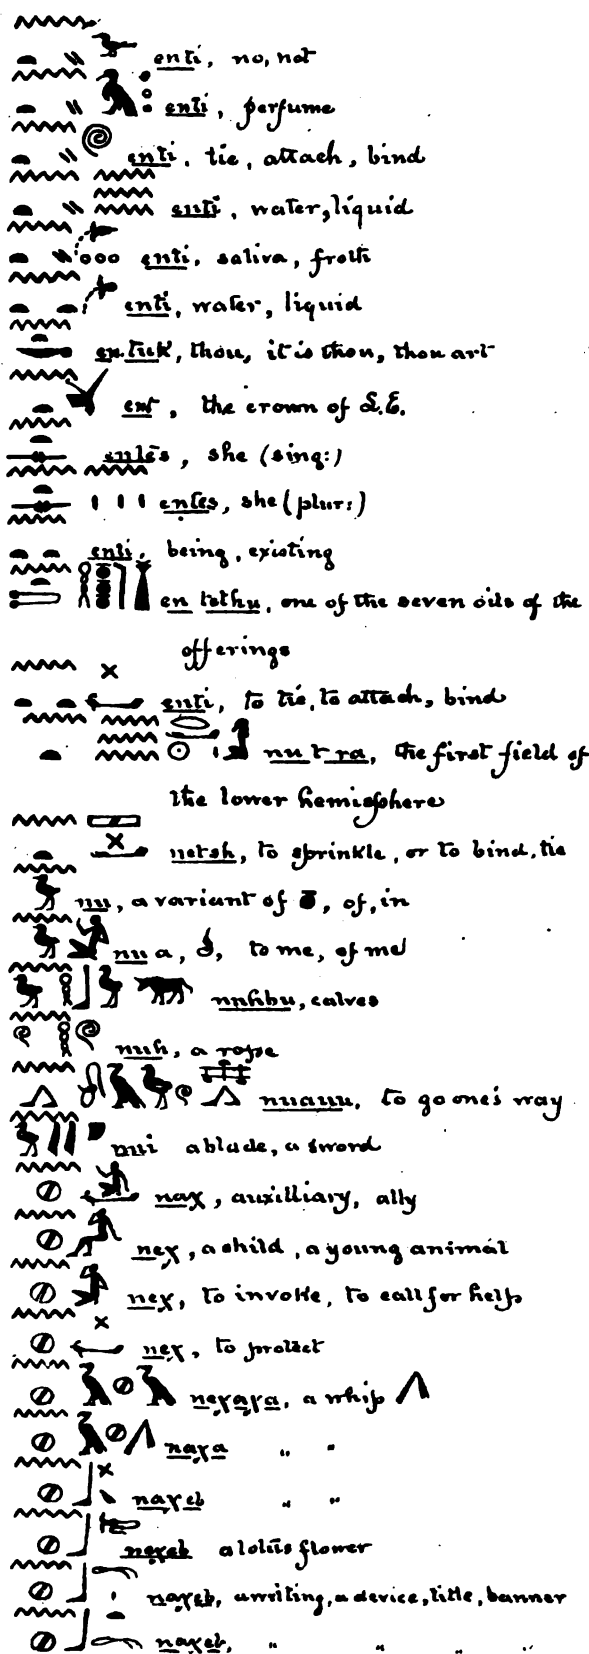 enti, no, not
enti, perfume
enti, tie, attach, bind
enti, water, liquid
enti, saliva, froth
enti, water, liquid
entuk, thou, it is thou, thou art
ent, the crown of L.E.
entes, she (sing:)
entes, she (plur:)
enti, being, existing
en tethu, one of the seven oils of the
offerings
enti, to tie, to attach, bind
nu t ra, the first field of
the lower hemisphere
netsh, to sprinkle, or to bind, tie
nu, a variant of, of, in
nu a, to me, of me
nnhbu, calves
nuh, a rope
nuauu, to go one's way
nui a blade, a sword
naχ, auxilliary, ally
neχ, a child, a young animal
neχ, to invoke, to call for help
neχ, to protect
neχaχa, a whip
naχa " "
naχeb " "
naχeb a lotus flower
naχeb, a writing, a device, title, banner
naχeb, " " " "